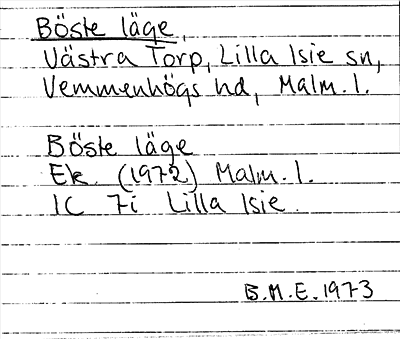 Böste läge,
Västra Torp, Lilla Isie sn,
Vemmenhögs hd, Malm. l.
Böste läge
Ek. (1972) Malm. l.
1C 7i Lilla Isie.
B.M.E. 1973